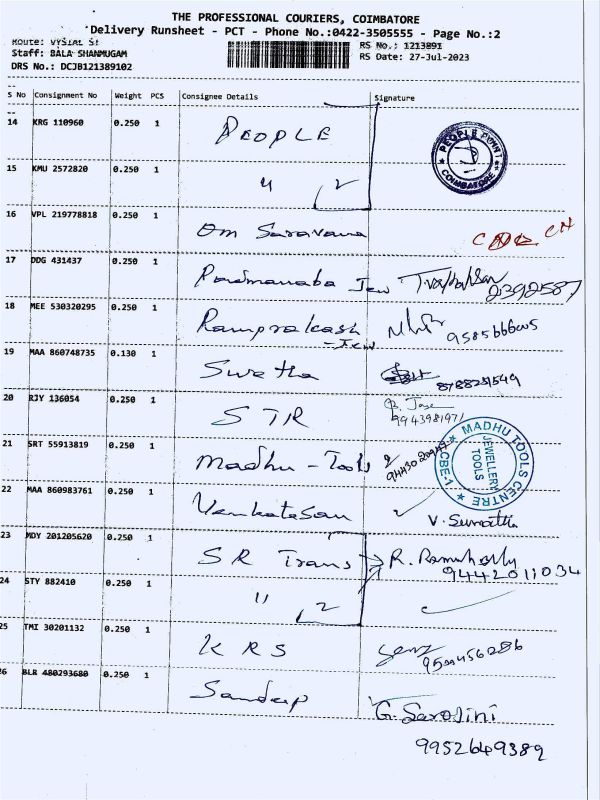 THE PROFESSIONAL COURIERS, COIMBATORE
Delivery Runsheet - PCT - Phone No.:0422-3505555 - Page No.:2
Route: VYSIAL St
Staff: BALA SHANMUGAM
DRS No.: DCJB121389102
RS No.: 1213891
RS Date: 27-Jul-2023
S No Consignment No Weight PCS Consignee Details Signature
14 KRG 110960 0.250 1 PEOPLE
PEOPLE POINT COIMBATORE
15 KMU 2572820 0.250 1 " 2
16 VPL 219778818 0.250 1 Om Saravana
17 DDG 431437 0.250 1 Padmanaba Jew 2392587
18 MEE 530320295 0.250 1 Ramprakash - Jew
19 MAA 860748735 0.130 1 Swetha
20 RJY 136054 0.250 1 STR 9943981971
21 SRT 55913819 0.250 1 Madhu - Tools
MADHU TOOLS CENTRE CBE-1 JEWELLERY TOOLS
22 MAA 860983761 0.250 1 Venkatesan V. Sumathi
23 MDY 201205620 0.250 1 SR Trans R. 9442011034
24 STY 882410 0.250 1 " 2
25 TMI 30201132 0.250 1 KRS
26 BLR 480293680 0.250 1 Sandeep G. Sarojini
9952649389